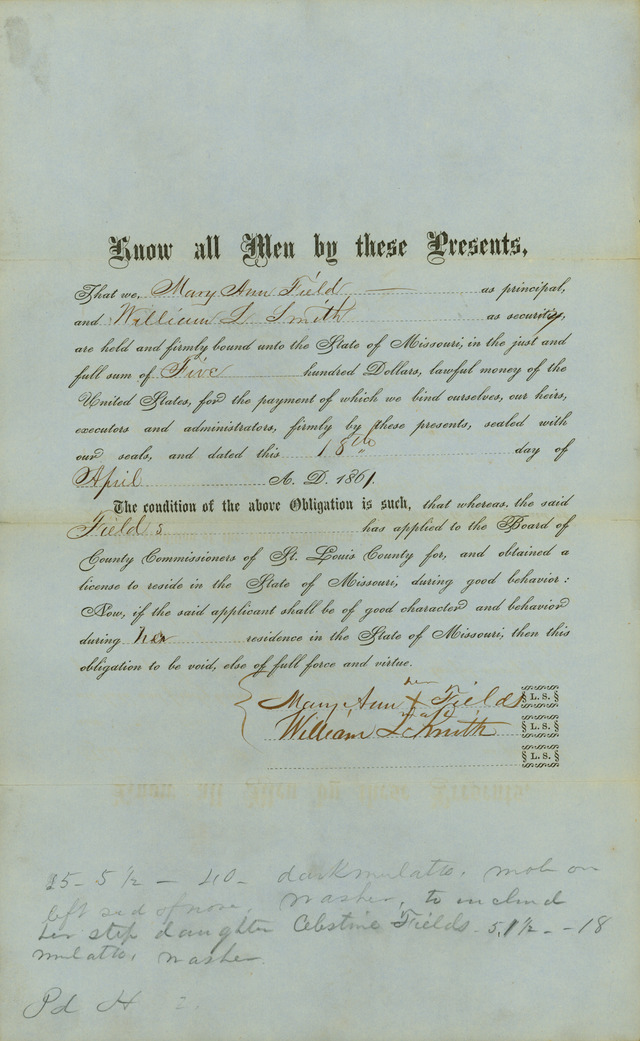 Know all Men by these Presents,
That we, Mary Ann Field as principal,
and William L Smith as security,
are held and firmly bound unto the State of Missouri, in the just and
full sum of Five hundred Dollars, lawful money of the
United States, for the payment of which we bind ourselves, our heirs,
executors and administrators, firmly by these presents, sealed with
our seals, and dated this 18th day of
April A. D. 1861.
The condition of the above Obligation is such, that whereas, the said
Fields has applied to the Board of
County Commissioners of St. Louis County for, and obtained a
license to reside in the State of Missouri, during good behavior:
Now, if the said applicant shall be of good character and behavior
during her residence in the State of Missouri, then this
obligation to be void, else of full force and virtue.
her
Mary Ann X Fields L. S.
mark
William L Smith L. S.
L. S.
5 1/2 - 40 - dark mulatto, mole on
left sid of nose, washer, to includ
her step daughter Celestine Fields - 5, 1 1/2 - - 18
mulatto, washer.
Pd H